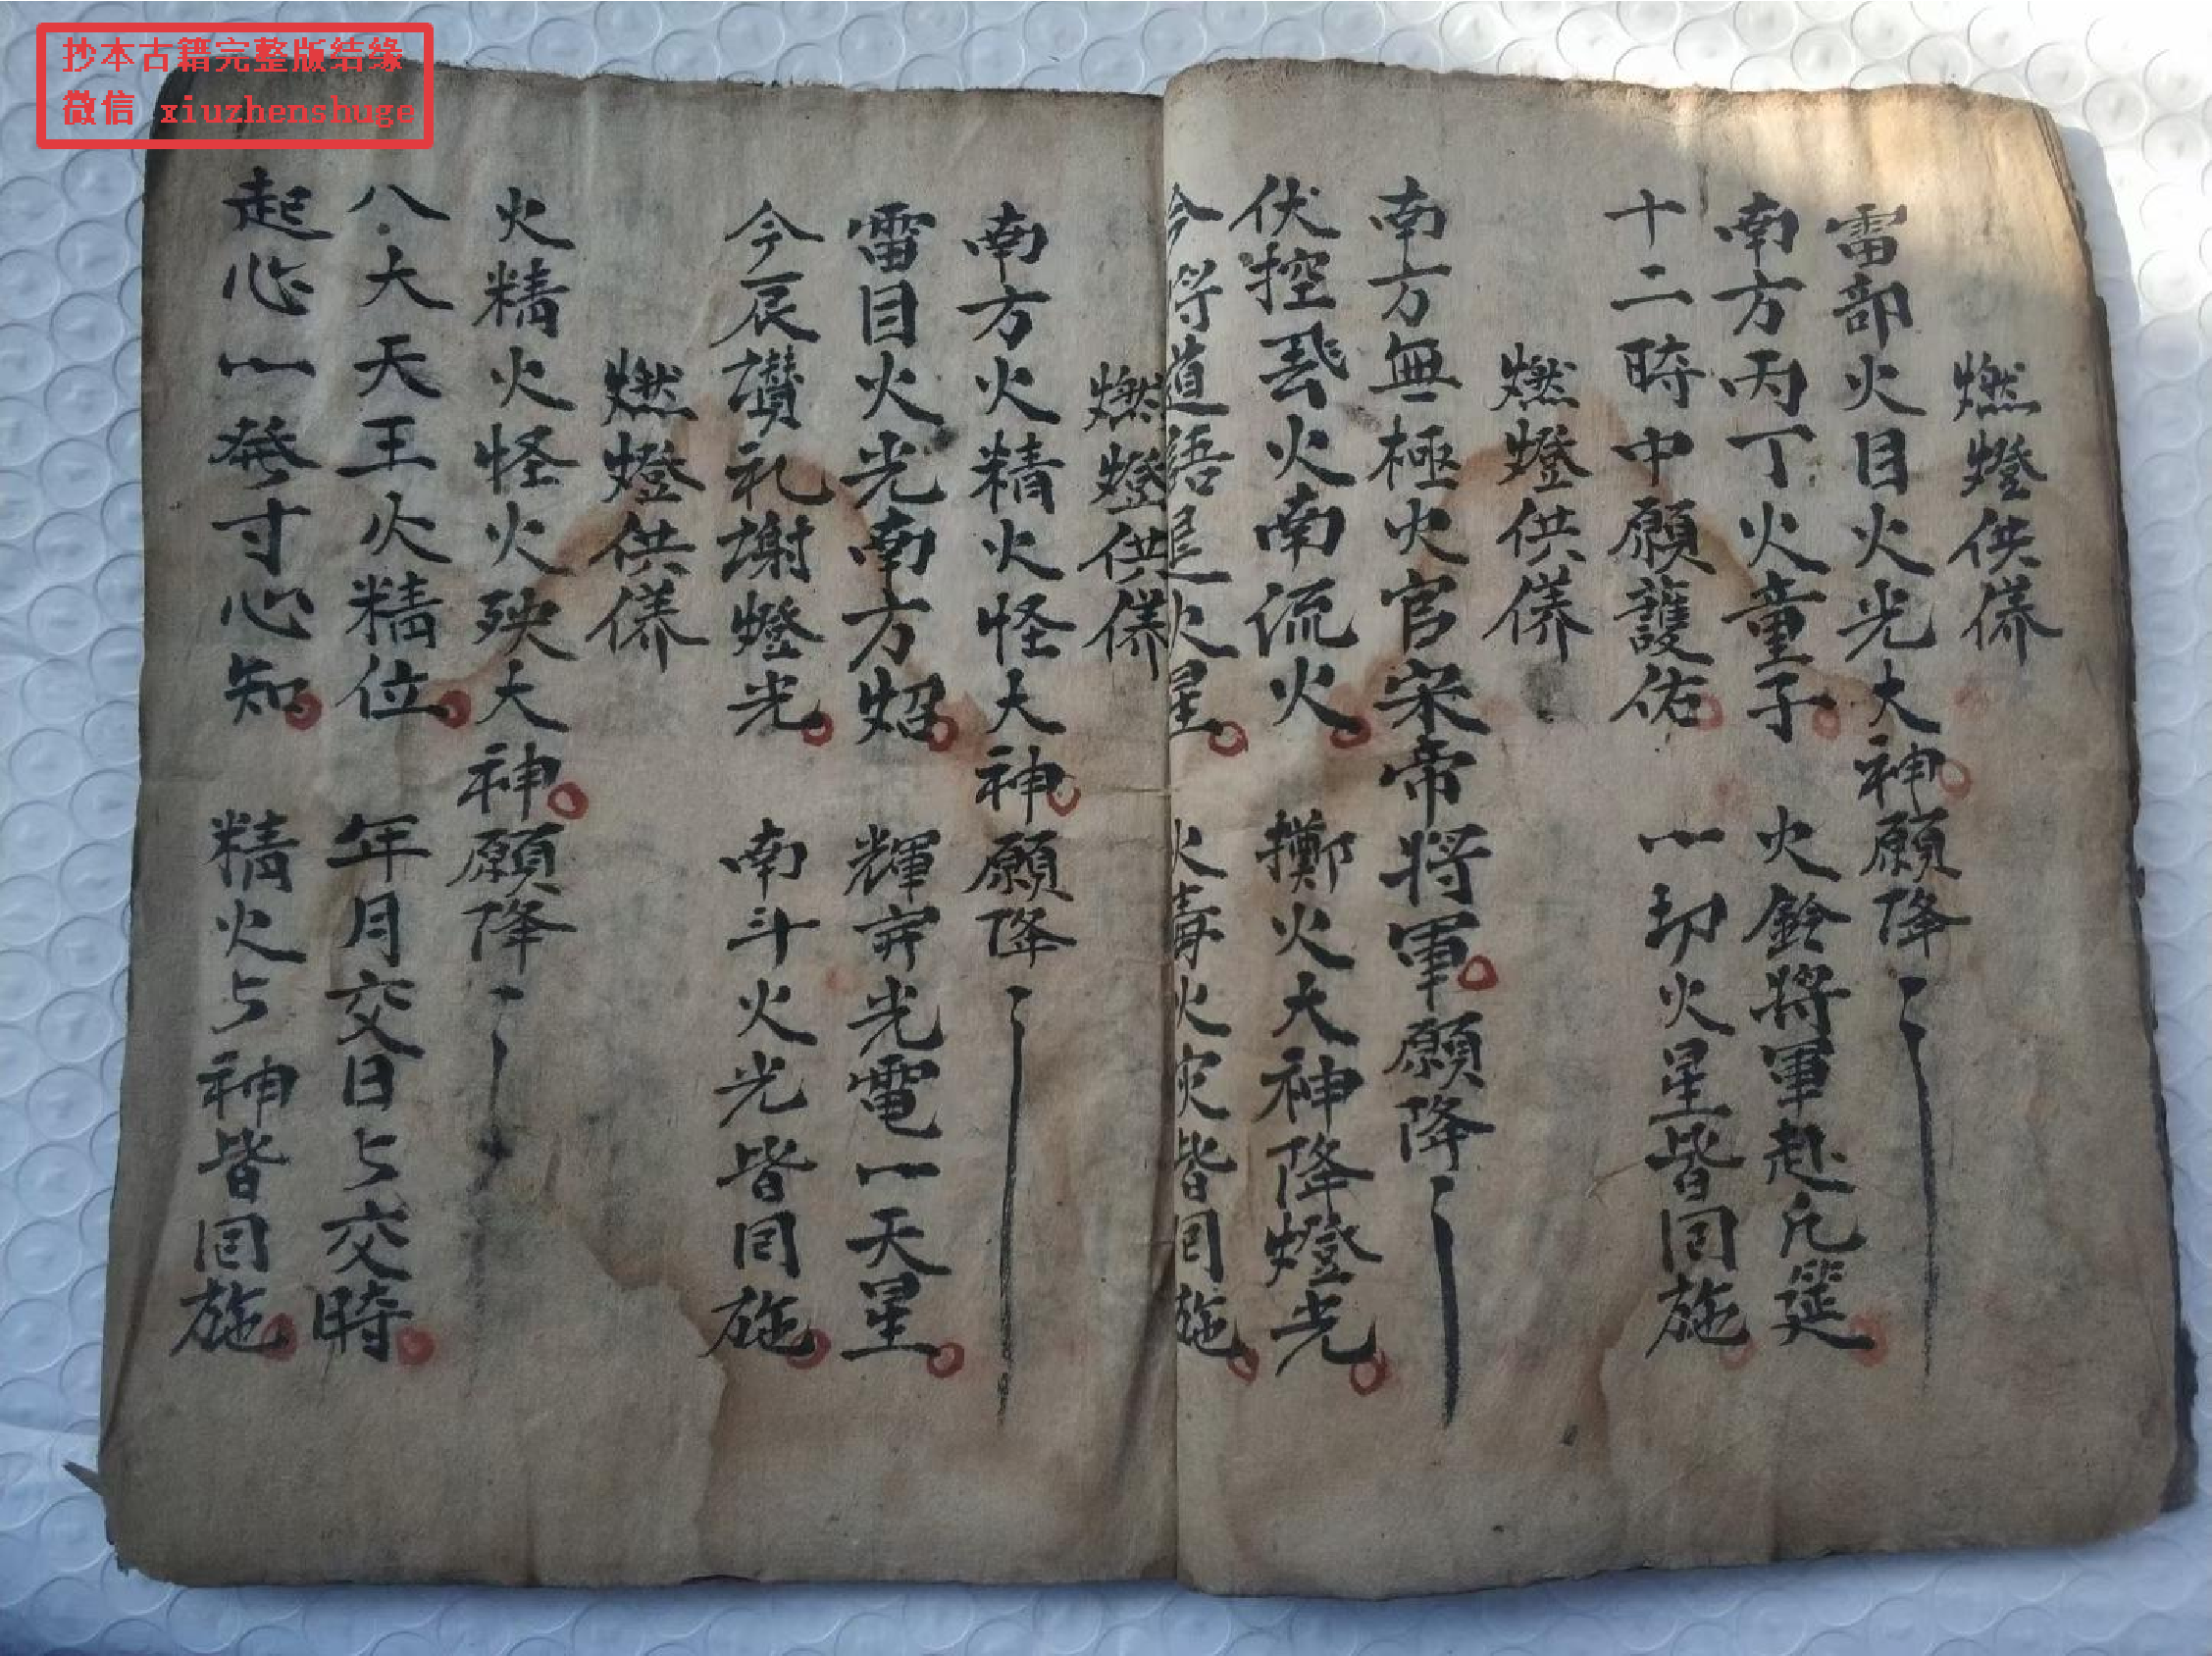 抄本古籍完整版结缘
微信 xiuzhenshuge
燃燈供儀
雷部火目火光大神願降
南方丙丁火童子 火鈴將軍赴凡筵
十二時中願護佑 一切火星皆回施
燃燈供儀
南方無極火官宋帝將軍願降
伏控飛火南流火 擲火大神降燈光
今將道 火星 火毒火灾皆回施
燃燈供儀
南方火精火怪大神願降
雷目火光南方炤 輝 光電一天星
今辰讚礼謝燈光 南斗火光皆回施
燃燈供儀
火精火怪火殃大神願降
八大天王火精位 年月交日与交時
起心一發寸心知 精火与神皆回施